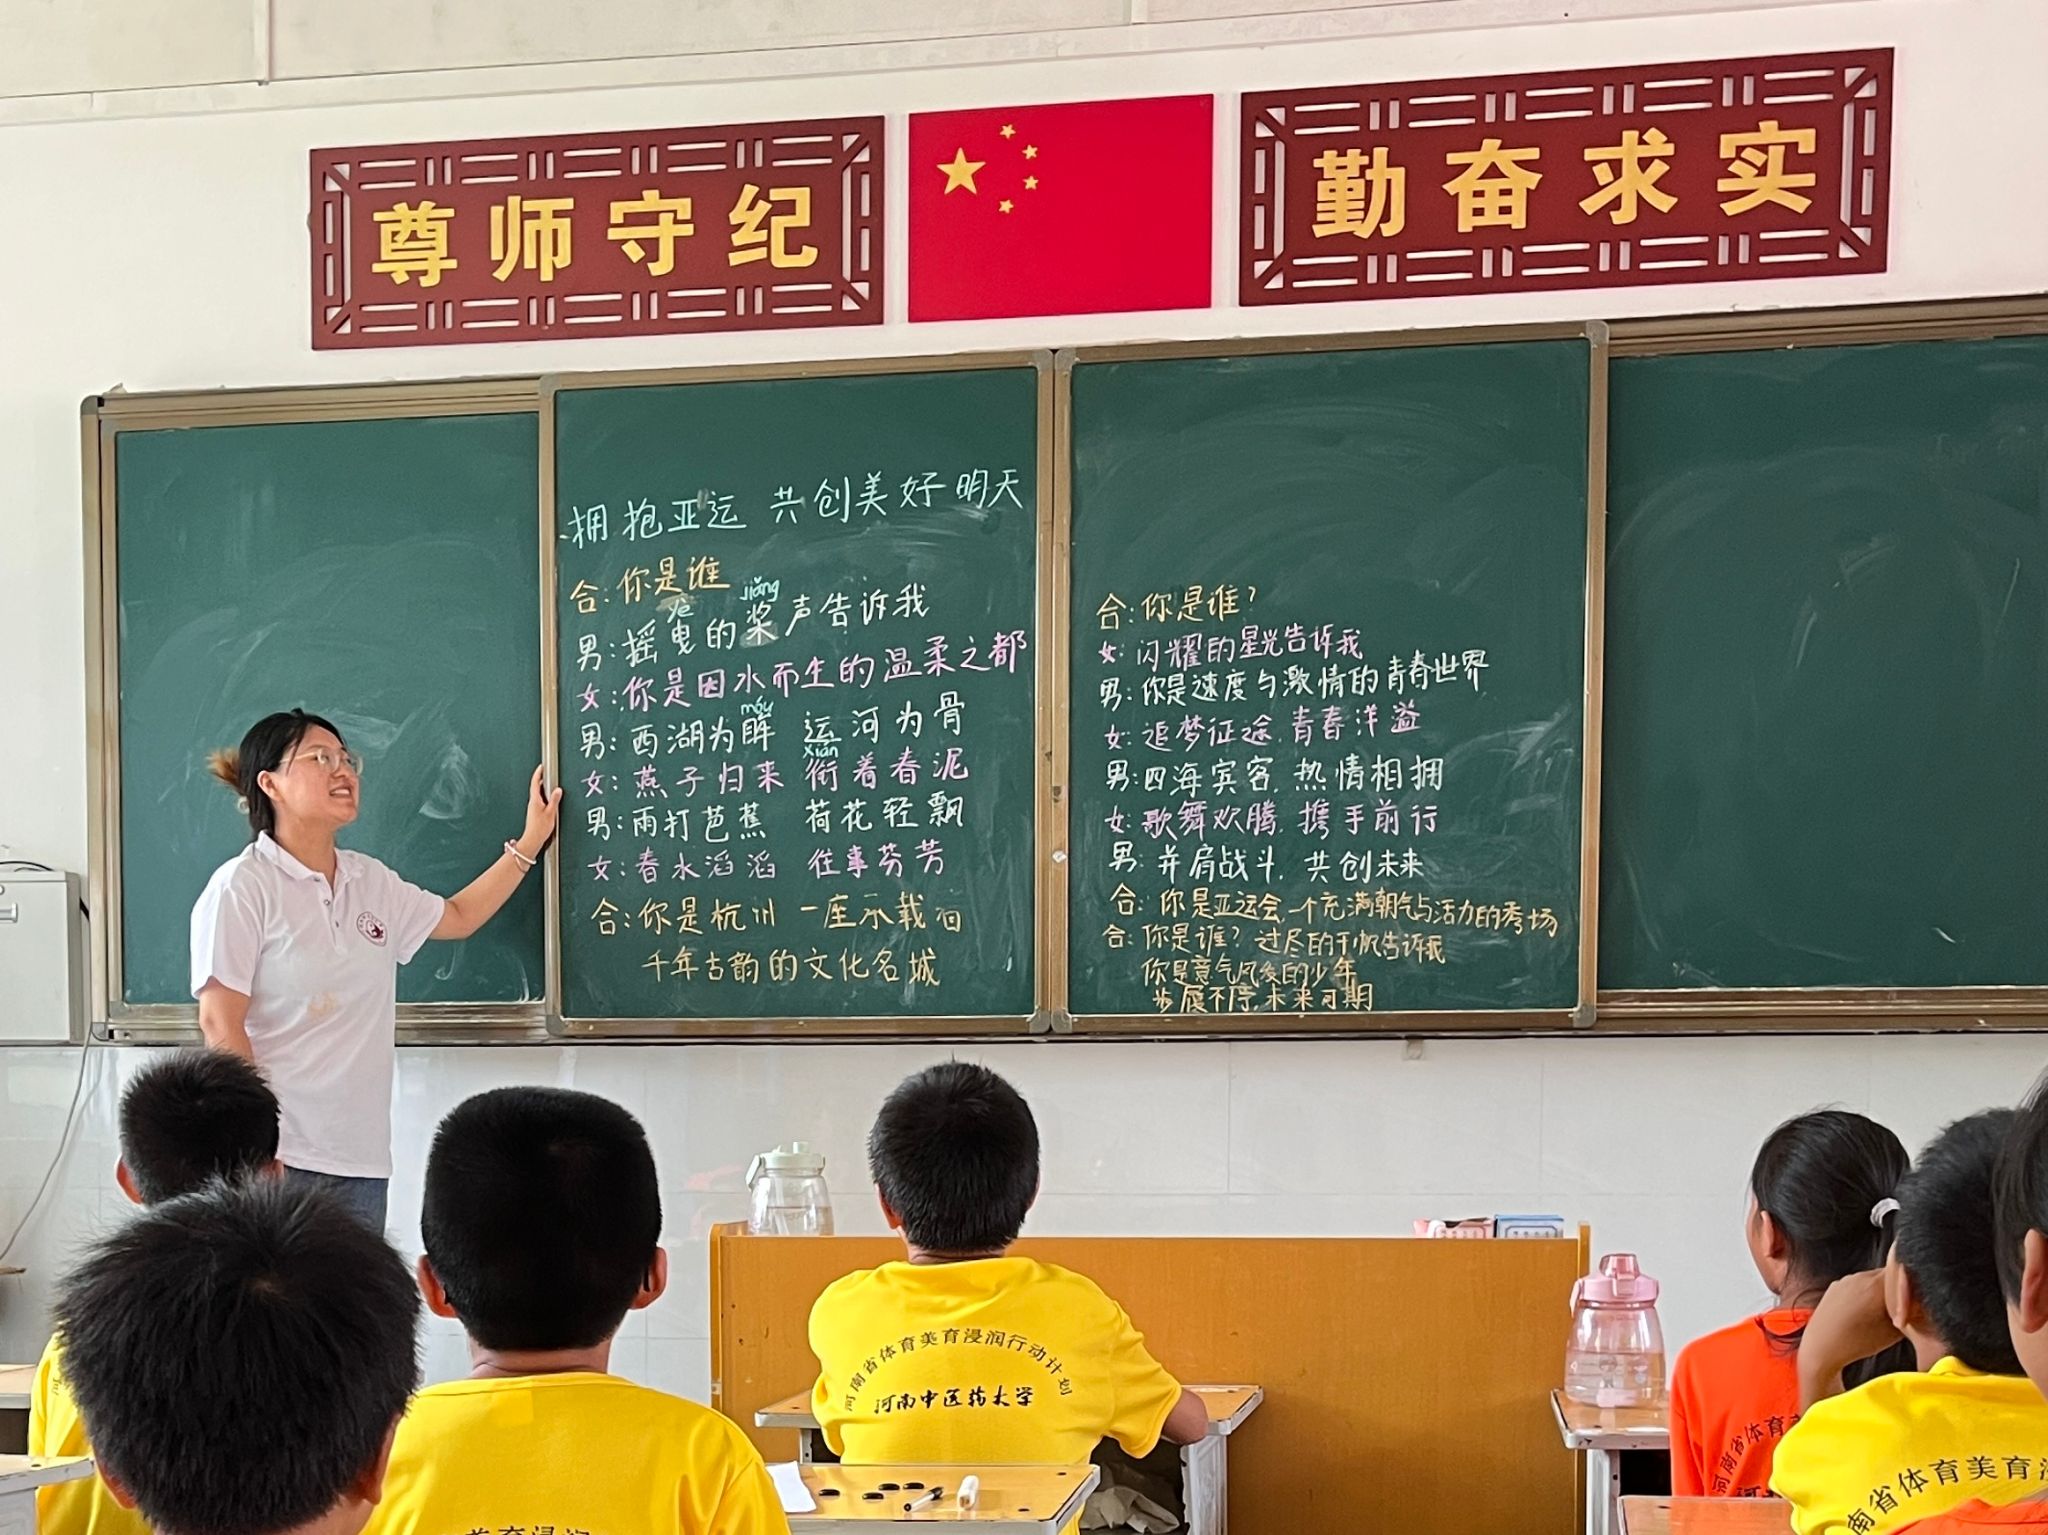 尊师守纪
勤奋求实
拥抱亚运 共创美好明天
合：你是谁
yè jiǎng
男：摇曳的桨声告诉我
女：你是因水而生的温柔之都
móu
男：西湖为眸 运河为骨
xián
女：燕子归来 衔着春泥
男：雨打芭蕉 荷花轻飘
女：春水滔滔 往事芬芳
合：你是杭州 一座承载着
千年古韵的文化名城
合：你是谁？
女：闪耀的星光告诉我
男：你是速度与激情的青春世界
女：追梦征途，青春洋溢
男：四海宾客，热情相拥
女：歌舞欢腾，携手前行
男：并肩战斗，共创未来
合：你是亚运会，一个充满朝气与活力的秀场
合：你是谁？过尽的千帆告诉我
你是意气风发的少年
步履不停，未来可期
河南省体育美育浸润行动计划
河南中医药大学
河南省体育
南省体育美育浸
美育浸润